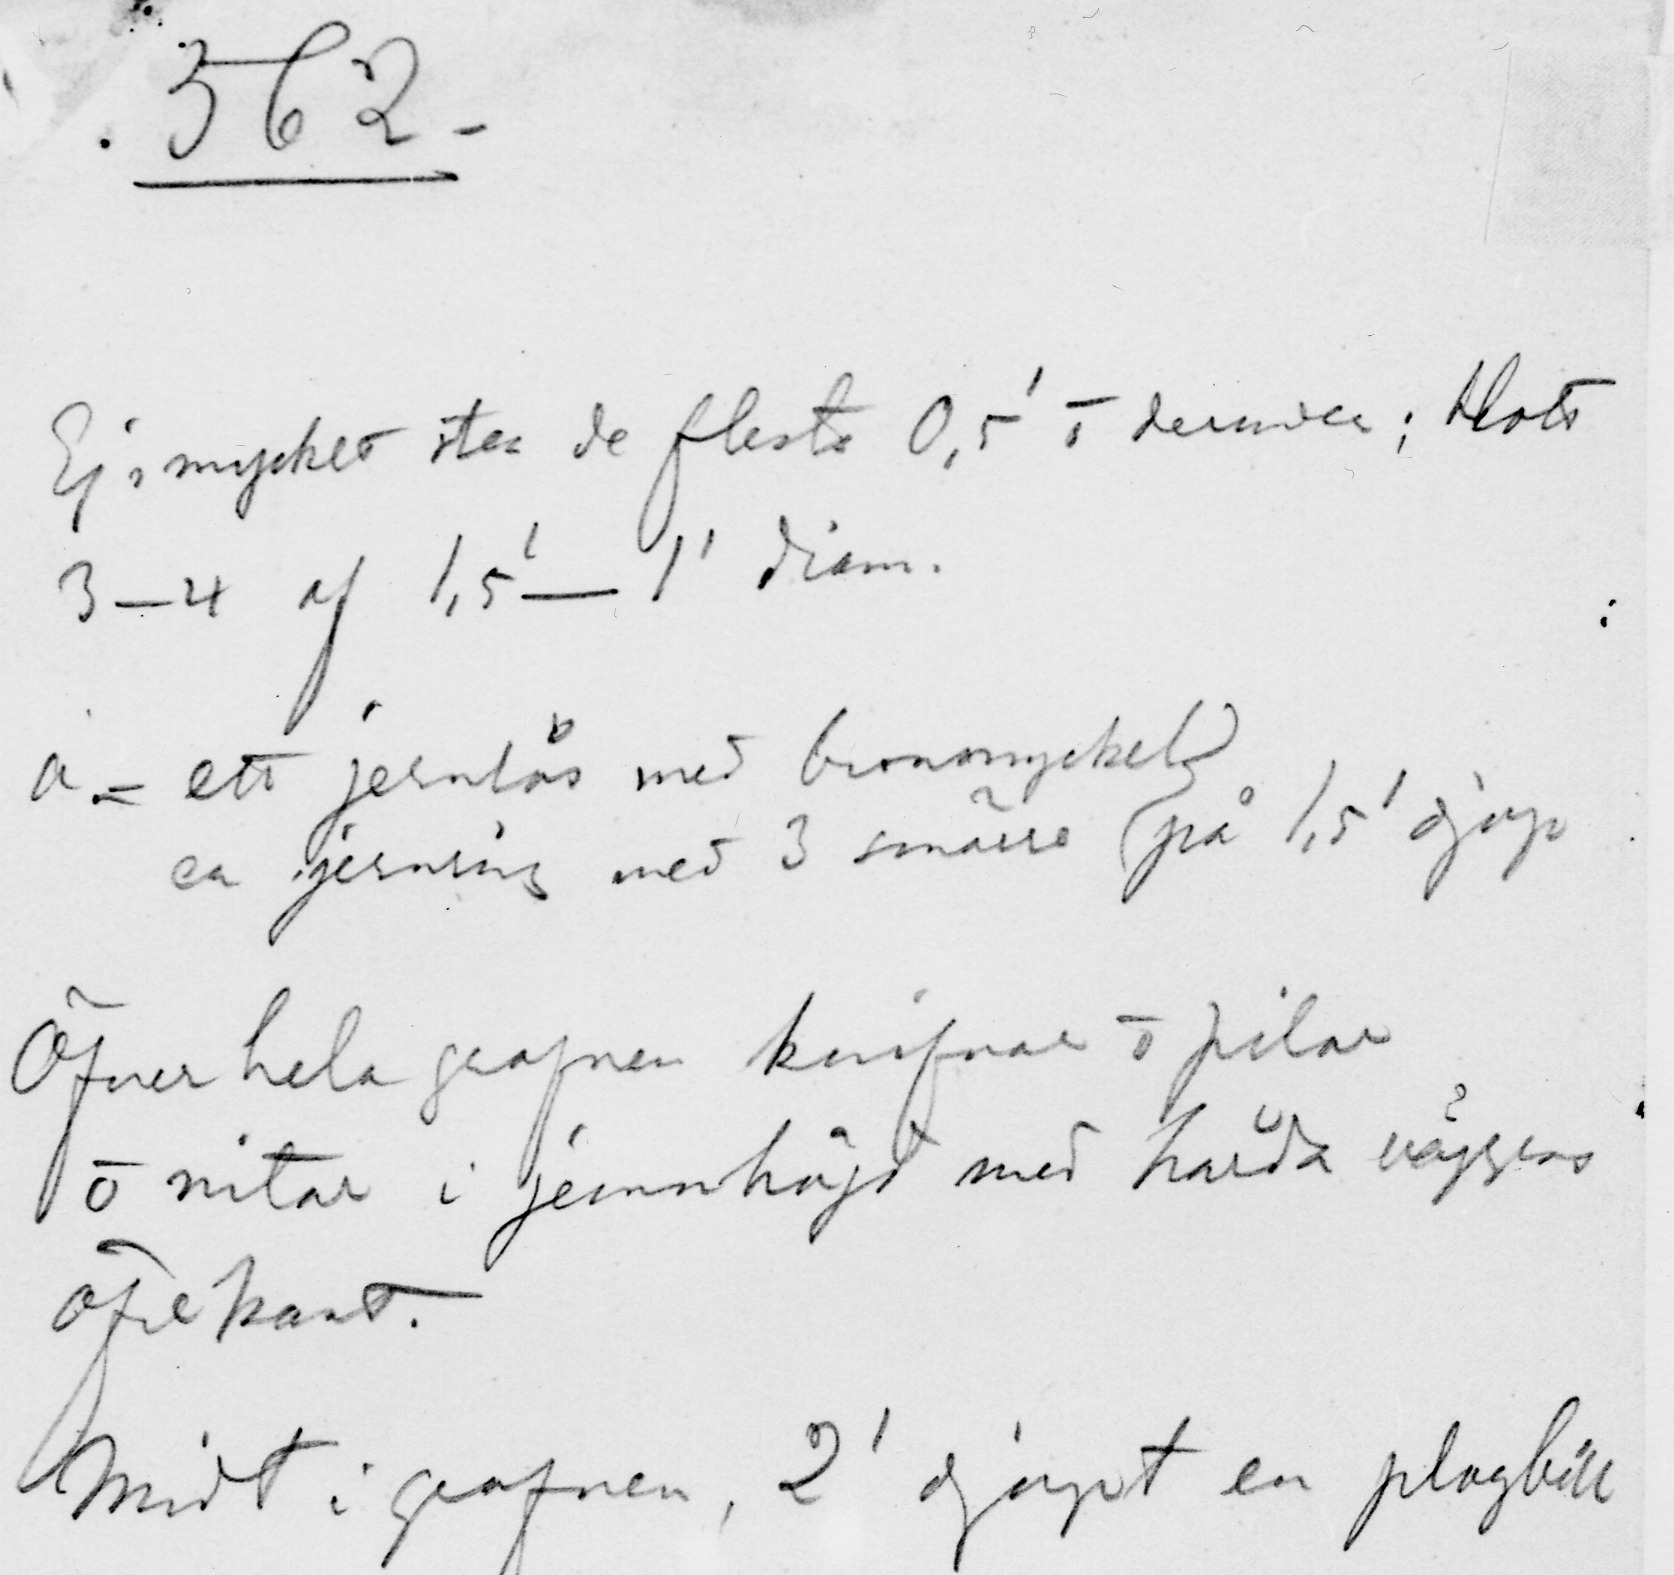 562.
Ej mycket sten de flesta 0,5' o derunder; blott
3–4 af 1,5'–1' diam.
a = ett jernlås med bronsnyckel
en jernring med 3 smärre på 1,5' djup
Öfver hela grafven knifvar o pilar
o nitar i jemnhöjd med hårda väggens
öfre kant.
Midt i grafven, 2' djupt en plogbill